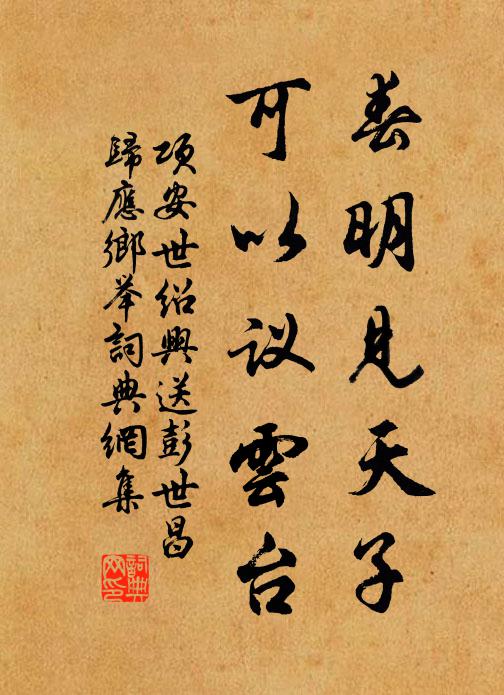 春明見天子
可以议雲台
項安世绍興送彭世昌
歸應鄉举詞典網集
詞典网印